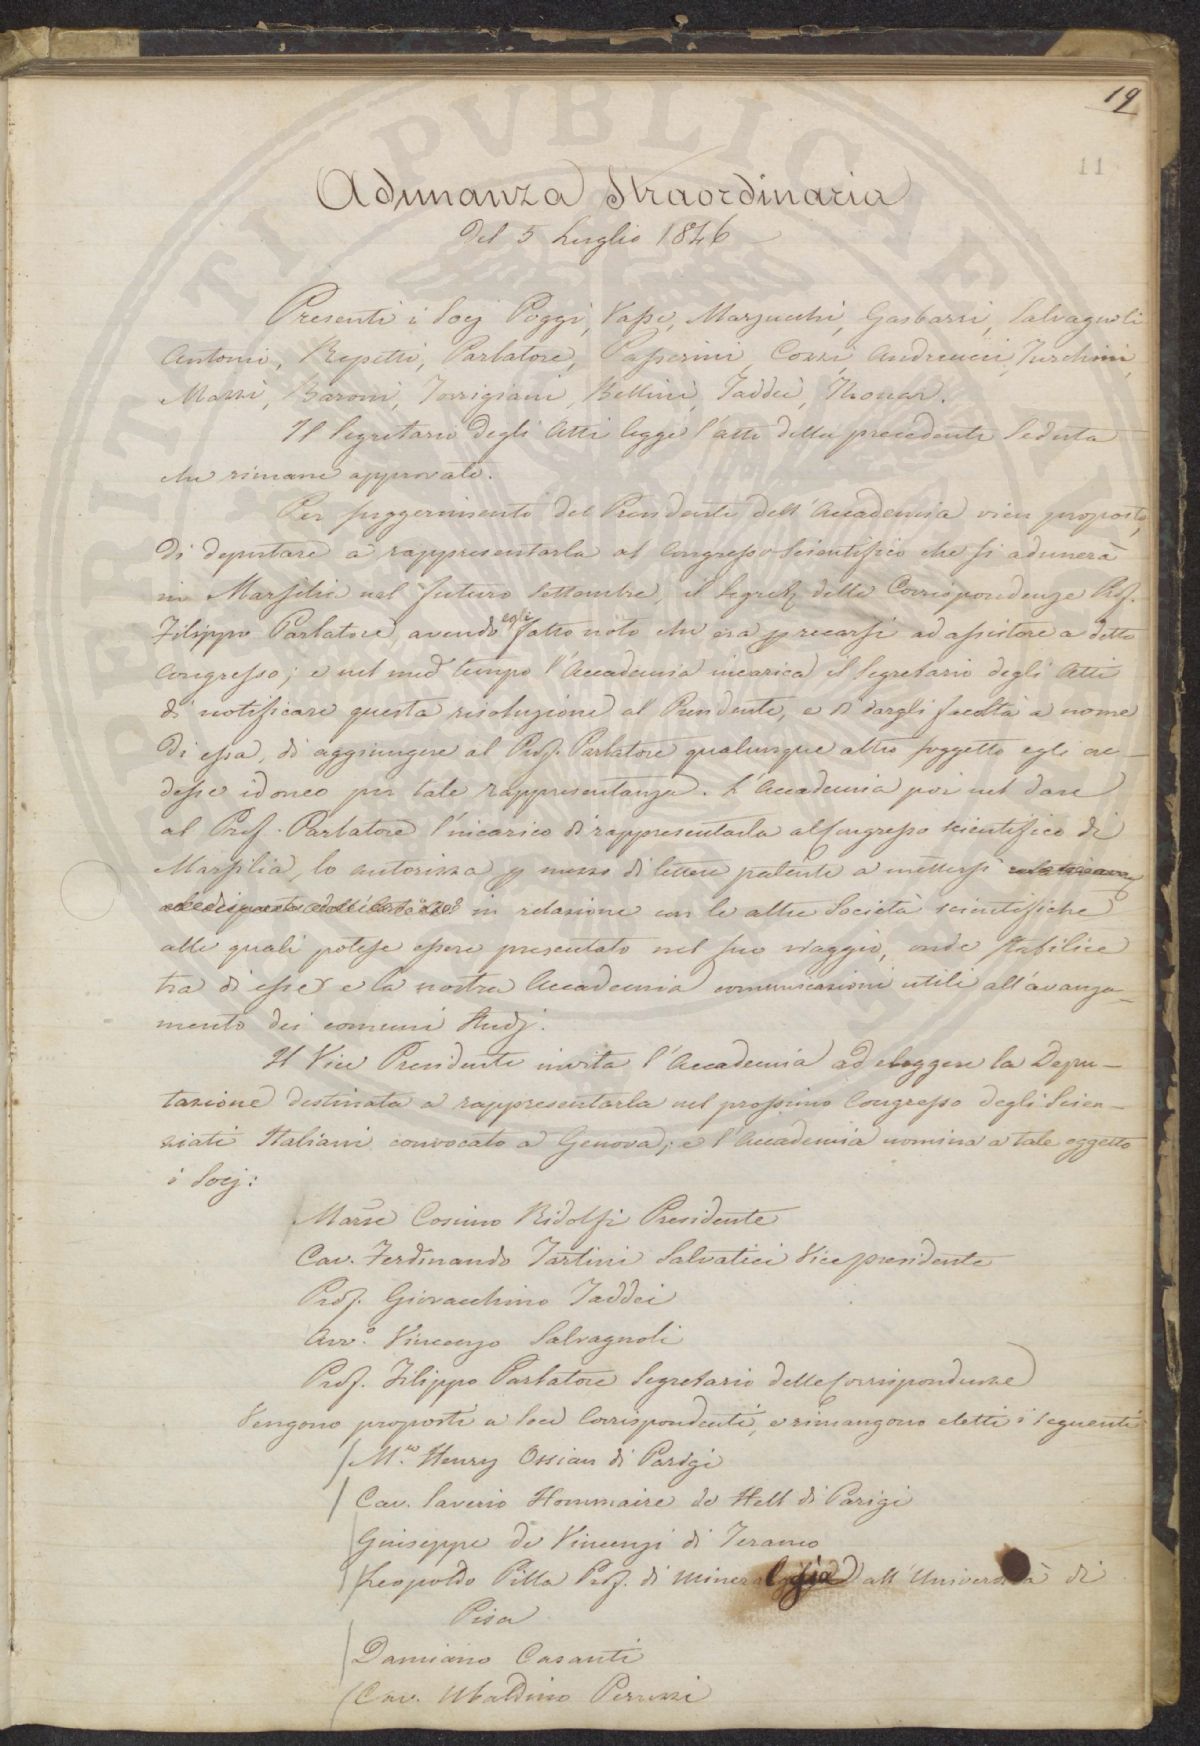 19
11
Adunanza Straordinaria
del 5 Luglio 1846
Presenti i Socj Poggi, Vaſse, Marzucchi, Gasbarri, Salvagnoli
Antonio, Repetti, Parlatore, Paſserini, Cozzi, Andreucci, Turchini,
Mazzi, Baroni, Torrigiani, Bellini, Taddei, Thouar.
Il Segretario degli Atti legge l'atto della precedente Seduta
che rimane approvato.
Per suggerimento del Presidente dell'Accademia vien proposto,
di deputare a rappresentarla al Congreſso Scientifico che si adunerà
in Marsilia nel futuro Settembre, il Segret. delle Corrispondenze Prof.
Filippo Parlatore, avendo egli fatto noto che era p recarsi ad aſsistere a detto
Congreſso; e nel med tempo l'Accademia incarica il Segretario degli Atti
di notificare questa risoluzione al Presidente, e di dargli facoltà a nome
di eſsa, di aggiungere al Prof. Parlatore qualunque altro soggetto egli cre-
deſse idoneo per tale rappresentanza. L'Accademia poi nel dare
al Prof. Parlatore l'incarico di rappresentarla al Congreſso scientifico di
Marsilia, lo autorizza p mezzo di lettere patente a mettersi
in relazione con le altre Società scientifiche
alle quali poteſse eſsere presentato nel suo viaggio, onde stabilire
tra di eſse e la nostra Accademia comunicazioni utili all'avanza-
mento dei comuni studj.
Il Vice Presidente invita l'Accademia ad eleggere la Depu-
tazione destinata a rappresentarla nel proſsimo Congreſso degli Scien-
ziati Italiani convocato a Genova; e l'Accademia nomina a tale oggetto
i Socj:
Marse Cosimo Ridolfi Presidente
Cav. Ferdinando Tartini Salvatici Vice presidente
Prof. Giovacchino Taddei
Avv.º Vincenzo Salvagnoli
Prof. Filippo Parlatore Segretario delle Corrispondenze
Vengono proposti a Soci Corrispondenti, e rimangono eletti i seguenti
Henry Ossian di Parigi
Cav. Saverio Hommaire de Hell di Parigi
Giuseppe de Vincenzi di Teramo
Leopoldo Pilla Prof. di Mineralogia all'Università di
Pisa
Damiano Casanti
Cav. Ubaldino Peruzzi